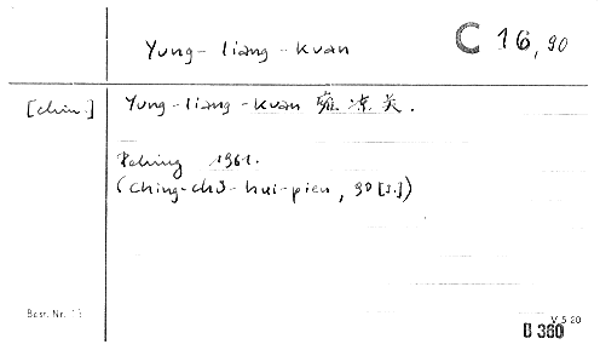 Yung-liang-kuan
C 16, 90
[chin.] Yung-liang-kuan 雍凉关.
Peking 1961.
(Ching-chü-hui-pien, 90 [s.])
Best. Nr. 13
V 5 20
D 360